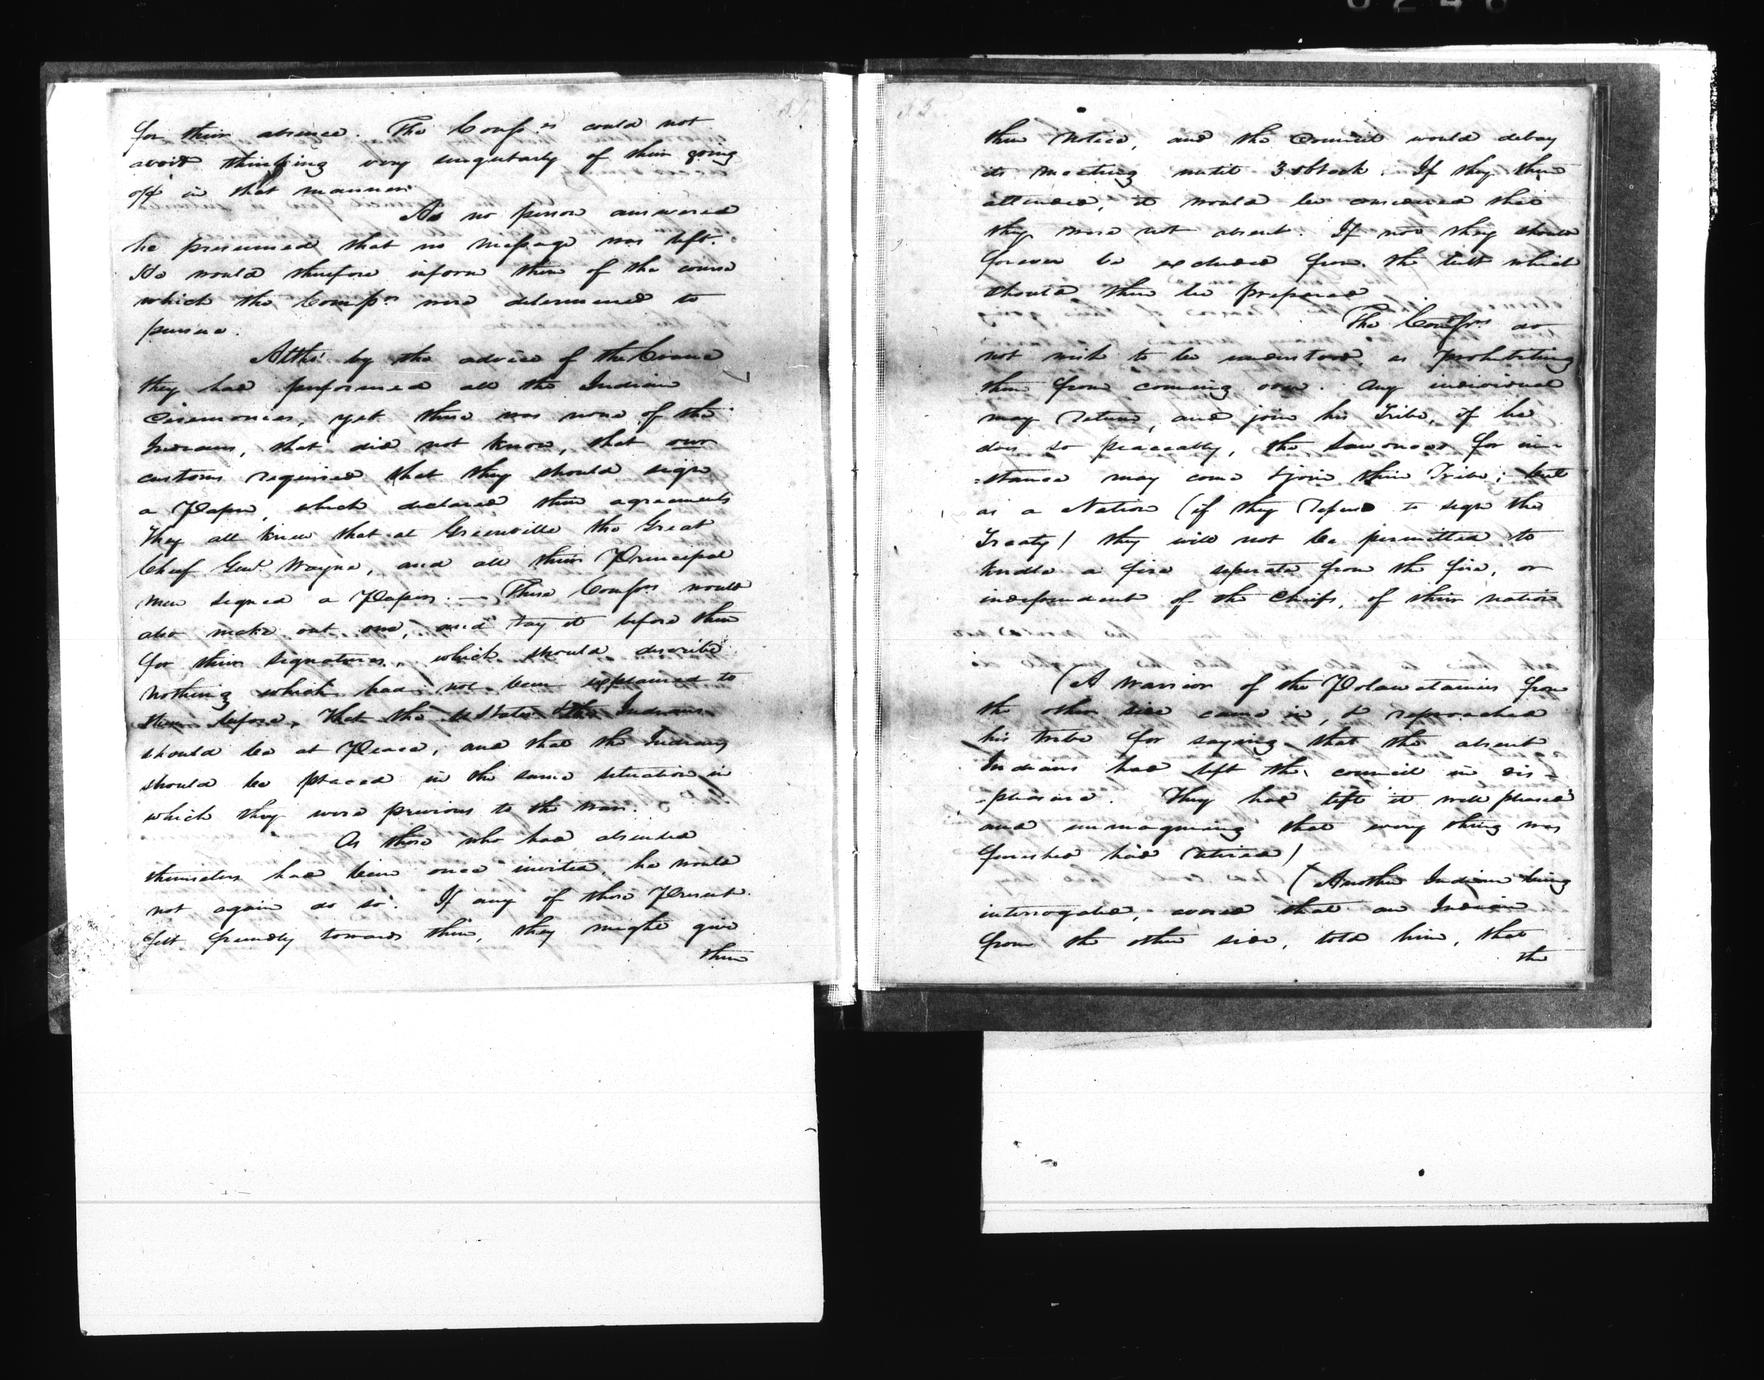 for their absence. The Comss.rs could not
avoid thinking very singularly of their going
off in that manner.
As no person answered
he presumed that no message was left.
He would therefore inform them of the course
which the Comss.rs were determined to
pursue.
Altho' by the advice of the Crane
they had performed all the Indian
Ceremonies, yet there was none of the
Indians, that did not know, that our
customs required that they should sign
a Paper, which declared their agreements
They all knew that at Greenville the Great
Chief Genl. Wayne, and all their Principal
men signed a Paper. — These Comssrs would
also make out one, and lay it before them
for their signatures, which should describe
nothing which had not been explained to
them before, That the U States & the Indians
should be at Peace, and that the Indians
should be placed in the same situation in
which they were previous to the War.
As those who had absented
themselves had been once invited, he would
not again do so. If any of those Present
felt friendly towards them, they might give
them
35
them Notice, and the Council would delay
its meeting until 3 oClock. If they then
attended, it would be considered that
they were not absent. If not they should
forever be excluded from the
should then be prepared
The Comssrs do
not wish to be understood as prohibiting
them from coming over. Any individual
may return, and join his Tribe, if he
does so peaceably, the for in-
-stance may come & join their Tribe; but
as a Nation (if they refuse to sign the
Treaty) they will not be permitted to
kindle a fire seperate from the fire, or
independent of the Chiefs, of their nation
(A Warrior of the Potawatamies from
the other side came in, & reproached
his tribe for saying that the absent
Indians had left the council in dis-
-pleasure. They had left it well pleased
and immagining that every thing was
finished had retired)
(Another Indian being
interrogated, said that an Indian
from the other side, told him, that
the